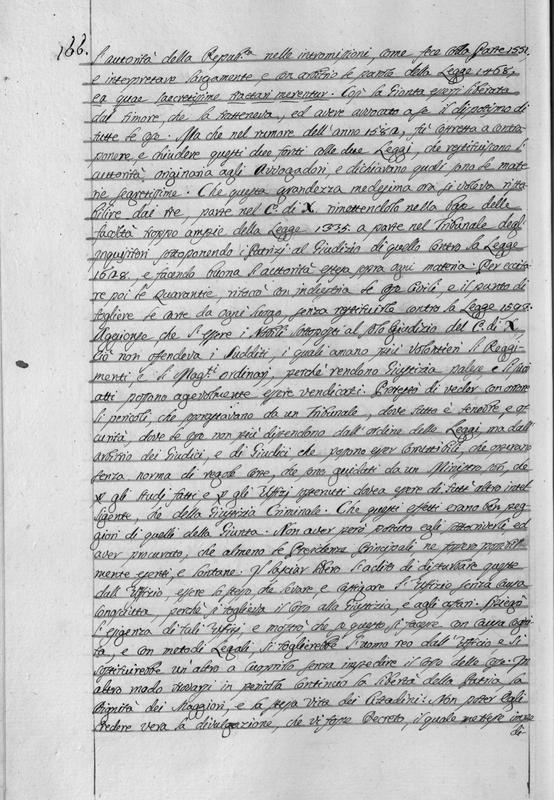 166.
l'autorità della Repub.ca nelle intromissioni, come fece colla Parte 1551,
e interpretare largamente e con arbitrio le parole della Legge 1468,
ea quae secretissime tractari merentur. Così la Gionta essersi liberata
dal timore, che la tratteneva, ed avere avvocato a se il dispotismo di
tutte le cose. Ma che nel rumore dell'anno 1582, fù corretta a
ponere, e chiudere questi due fonti colle due Leggi, che restituirono l'
autorità originaria agli Avvogadori, e dichiarano quali sono le mate
rie segretissime. Che questa grandezza medesima ora si voleva rista
bilire da tre, parte nel C. di X. rimettendolo nella delle
facoltà troppo ampie della Legge 1335. a parte nel Tribunale degl'
inquisitori sottoponendo i Patrizj al Giudizio di quello contro la Legge
1628, e facendo buona l'autorità estesa sopra ogni materia. Per eccita
re poi le Quarantie, ritoccò con industria le cose Civili, e il punto di
togliere le carte da ogni luogo, senza restituirle contro la Legge 1593.
Aggionse che l'essere i Nobili sottoposti al solo giudizio del C. di X.
ciò non offendeva i Sudditi, i quali amano più volontieri li Reggi-
menti, e li Mag.ti ordinarj, perchè rendono Giustizia palese e li loro
atti possono agevolmente essere vendicati. Protestò di veder con orrore
li pericoli, che sovrastavano da un Tribunale, dove tutto è tenebre e os
curità, dove le cose non più dipendono dall'ordine delle Leggi, ma dall'
arbitrio dei Giudici, e di Giudici che possono esser corruttibili, che operavano
senza norma di regole certe, che sono guidati da un Ministro solo, che
p gli studj fatti e p gli Uffizj sostenuti dovea essere di tutt'altro intel-
ligente, che della Giustizia Criminale. Che questi effetti erano ben peg
giori di quelli della Gionta. Non aver però potuto egli ed
aver procurato, che almeno le Presidenze principali ne fossero
mente esenti, e lontane. Il lasciar libero l'adito di disturbare queste
dall'Uffizio, essere lo stesso che levare, e castigare l'Uffizio senza causa
conosciuta, perchè si toglieva il corso alla Giustizia, e agli affari. Spiegò
l'esigenza di tali Uffizj e mostrò, che se questo si facesse con causa cogni
ta, e con metodi Legali, si toglierebbe l'uomo reo dall'Uffizio, e si
sostituirebbe un'altro a cuoprirlo senza impedire il corso delle cose. In
altro modo trovarsi in pericolo continuo la libertà della Patria la
Dignità dei Maggiori, e la stessa vita dei Cittadini. Non poter Egli
credere vera la divulgazione, che vi fosse Decreto, il quale mettesse
di